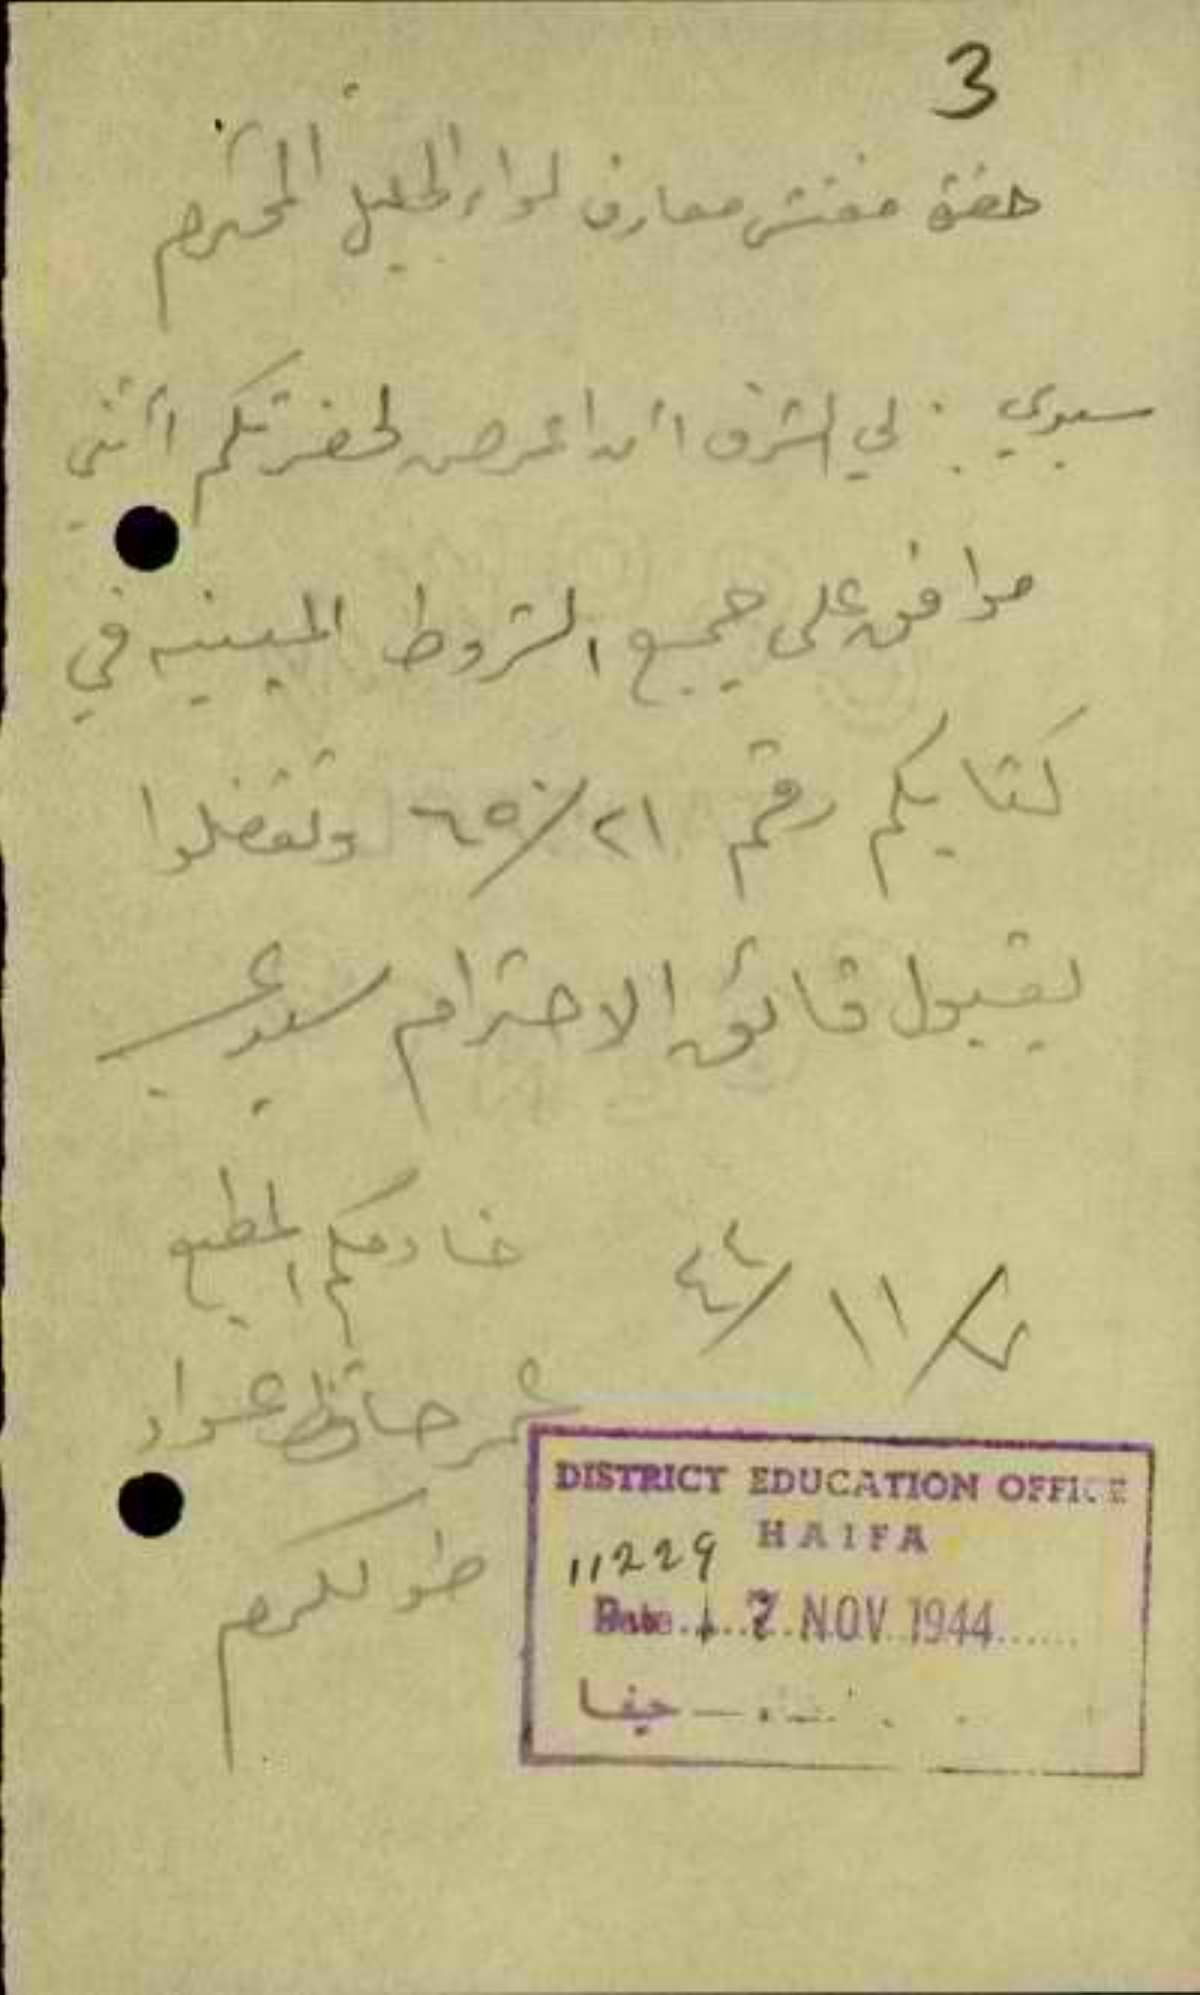 3
حضرة مفتش معارف لواء الجليل المحترم
سيدي : لي الشرف أن اعرض لحضرتكم أنني
موافق على جميع الشروط المبينه في
كتابكم رقم ٦٥/٢١ وتفضلوا
بقبول فائق الاحترام سيدي
خادمكم المطيع
١١/٤٤
حافظ عواد
طولكرم
DISTRICT EDUCATION OFFICE
HAIFA
11229
Date 7 NOV 1944
حيفا